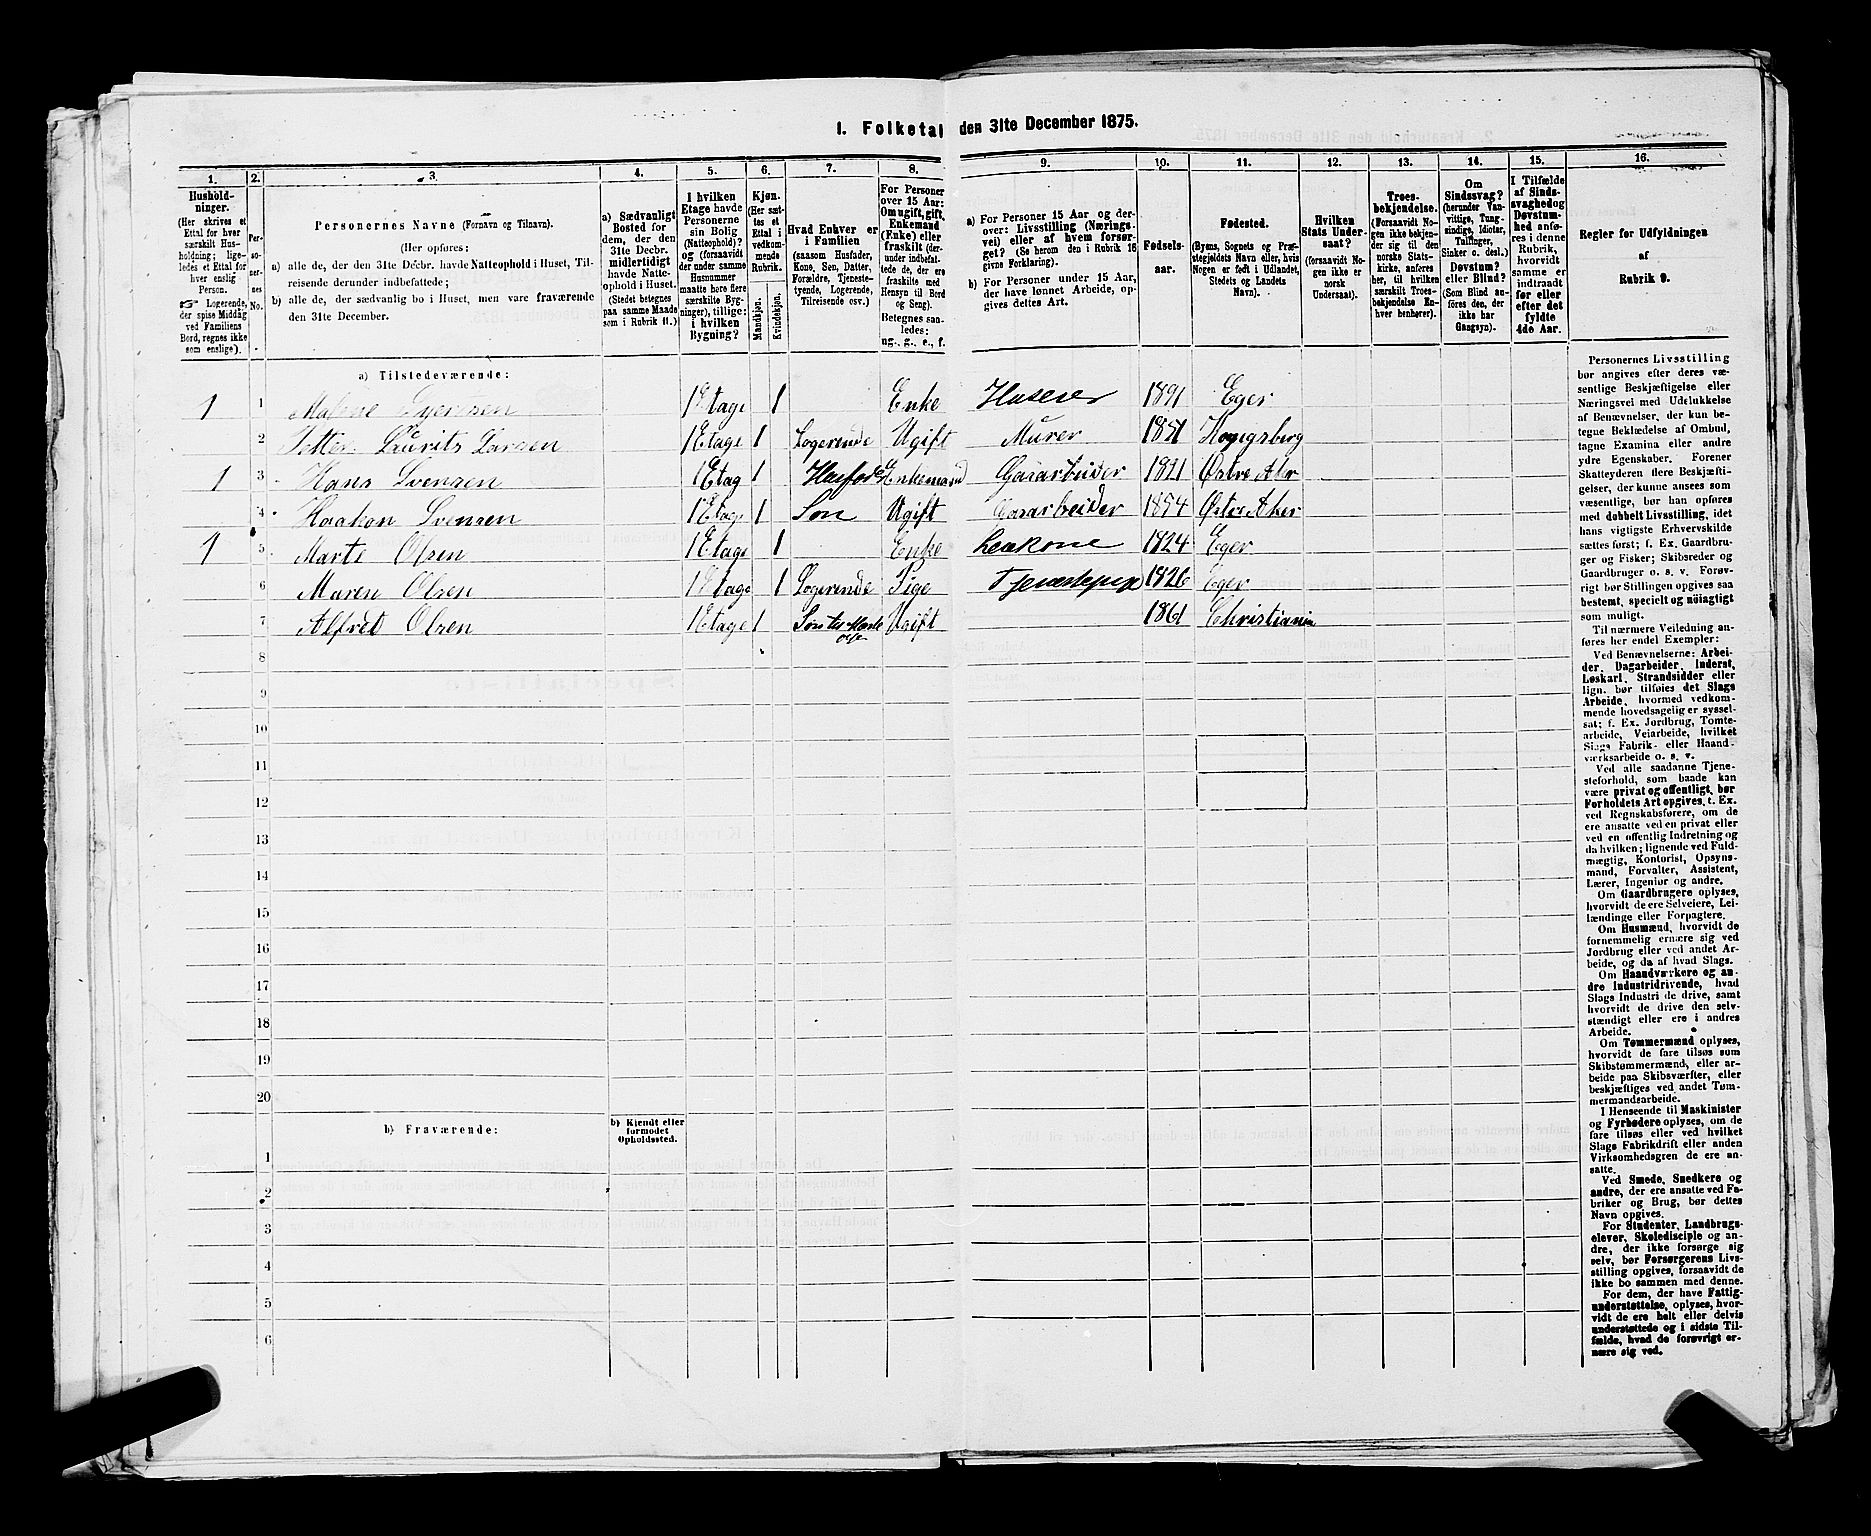 1. Folketal den 31te December 1875.
1. 2. 3. 4. 5. 6. 7. 8. 9. 10. 11. 12. 13. 14. 15. 16.
Hushold-
ninger.
(Her skrives et
Ettal for hver
særskilt Hus-
holdning; lige-
ledes et Ettal for
hver enslig
Person.
☞ Logerende,
der spise Middag
ved Familiens
Bord, regnes ikke
som enslige).
Per-
so-
ner-
nes
No.
Personernes Navne (Fornavn og Tilnavn).
(Her opføres:
a) alle de, der den 31te Decbr. havde Natteophold i Huset, Til-
reisende derunder indbefattede;
b) alle de, der sædvanlig bo i Huset, men vare fraværende
den 31te December.
a) Sædvanligt
Bosted for
dem, der den
31te Decbr.
midlertidigt
havde Natte-
ophold i Huset.
(Stedet betegnes
paa samme Maade
som i Rubrik 11.)
I hvilken
Etage havde
Personerne
sin Bolig
(Natteophold)?
og (forsaavidt
der under samme
Husnummer
maatte høre flere
særskilte Byg-
ninger), tillige:
i hvilken
Bygning?
Kjøn.
(Her sæt-
tes et
Ettal i
vedkom-
mende
Rubrik.
Mandkjøn.
Kvindekjøn.
Hvad Enhver er
i Familien
(saasom Husfader,
Kone, Søn, Datter,
Forældre, Tjeneste-
tyende, Logerende,
Tilreisende osv.)
For Personer
over 15 Aar:
Om ugift, gift,
Enkemand
(Enke) eller
fraskilt (der-
under indbefat-
tede de, der ere
fraskilte med
Hensyn til Bord
og Seng).
Betegnes saa-
ledes:
ug., g., e., f.
a) For Personer 15 Aar og der-
over: Livsstilling (Nærings-
vei) eller af hvem forsør-
get? (Se herom den i Rubrik 16
givne Forklaring).
b) For Personer under 15 Aar,
der have lønnet Arbeide, op-
gives dettes Art.
Fødsels-
aar.
Fødested.
(Byens, Sognets og Præ-
stegjeldets Navn eller, hvis
Nogen er født i Udlandet,
Stedets og Landets
Navn).
Hvilken
Stats Under-
saat?
(forsaavidt No-
gen ikke er
norsk
Undersaat).
Troes-
bekjendelse.
(Forsaavidt No-
gen ikke bekjen-
der sig til den
norske Stats-
kirke, anføres
her, til hvilken
særskilt Troes-
bekjendelse En-
hver henhører).
Om
Sindssvag?
(herunder Van-
vittige, Tung-
sindige, Idioter,
Tullinger,
Sinker o. desl.)
Døvstum?
eller Blind?
(Som Blind an-
føres den, der
ikke har
Gangsyn).
I Tilfælde
af Sinds-
svaghed og
Døvstum-
hed anfø-
res i denne
Rubrik,
hvorvidt
samme er
indtraadt
før eller
efter det
fyldte
4de Aar.
Regler for Udfyldningen
af
Rubrik 9.
a) Tilstedeværende:
1 1 Malene 1 Etage 1 Enke 1891 Eger
2 Laurits Larsen 1 Etage 1 Logerende Ugift Murer 1851 Kongsberg
1 3 Hans Svensen 1 Etag 1 Husfader Enkemand Gasarbeider 1821 Østre Aker
4 Haakon Svensen 1 Etage 1 Søn Ugift Gasarbeider 1854 Østre Aker
1 5 Marte Olsen 1 Etage 1 Enke 1824 Eger
6 Maren Olsen 1 Etage 1 Logerende Pige Tjenestepige 1826 Eger
7 Alfred Olsen 1 Etage 1 Søn til Marte Olsen Ugift 1861 Christiania
8
9
10
11
12
13
14
15
16
17
18
19
20
b) Fraværende:
b) Kjendt eller
formodet
Opholdssted.
1
2
3
4
5
6
Personernes Livsstilling
bør angives efter deres væ-
sentlige Beskjæftigelse eller
Næringsvei med Udelukkelse
af Benævnelser, der kun be-
tegne Beklædelse af Ombud,
tagne Examina eller andre
ydre Egenskaber. Forener
Skatteyderen flere Beskjæfti-
gelser, der kunne ansees som
væsentlige, bør han opføres
med dobbelt Livsstilling, idet
hans vigtigste Erhvervskilde
sættes først; f. Ex. Gaardbru-
ger og Fisker; Skibsreder og
Gaardbruger o. s. v. Forøv-
rigt bør Stillingen opgives saa
bestemt, specielt og nøiagtigt
som muligt.
Til nærmere Veiledning an-
føres her endel Exempler:
Ved Benævnelserne: Arbei-
der, Dagarbeider, Inderst,
Løskarl, Strandsidder eller
lign. bør tilføies det Slags
Arbeide, hvormed vedkom-
mende hovedsagelig er syssel-
sat; f. Ex. Jordbrug, Tomte-
arbeide, Veiarbeide, hvilket
Slags Fabrik- eller Haand-
værksarbeide o. s. v.
Ved alle saadanne Tjene-
steforhold, som baade kan
være privat og offentligt, bør
Forholdets Art opgives, t. Ex.
ved Regnskabsførere, om de
ere ansatte ved en privat eller
ved en offentlig Indretning og
da hvilken; lignende ved Fuld-
mægtig, Kontorist, Opsyns-
mand, Forvalter, Assistent,
Lærer, Ingeniør og andre.
Om Gaardbrugere oplyses,
hvorvidt de ere Selveiere, Lei-
lændinge eller Forpagtere.
Om Husmænd, hvorvidt de
fornemmelig ernære sig ved
Jordbrug eller ved andet Ar-
beide, og da af hvad Slags.
Om Haandværkere og an-
dre Industridrivende, hvad
Slags Industri de drive, samt
hvorvidt de drive den selv-
stændigt eller ere i andres
Arbeide.
Om Tømmermænd oplyses,
hvorvidt de fare tilsøs som
Skibstømmermænd, eller ar-
beide paa Skibsværfter, eller
beskjæftiges ved andet Tøm-
mermandsarbeide.
I Henseende til Maskinister
og Fyrbødere oplyses, om de
fare tilsøs eller ved hvilket
Slags Fabrikdrift eller anden
Virksomhedsgren de ere an-
satte.
Ved Smede, Snedkere og
andre, der ere ansatte ved Fa-
briker og Brug, bør dettes
Navn opgives.
For Studenter, Landbrugs-
elever, Skoledisciple og an-
dre, der ikke forsørge sig
selv, bør Forsørgerens Livs-
stilling opgives, forsaavidt de
ikke bo sammen med denne.
For dem, der have Fattig-
understøttelse, oplyses, hvor-
vidt de ere helt eller delvis
understøttede og i sidste Til-
fælde, hvad de forøvrigt er-
nære sig ved.